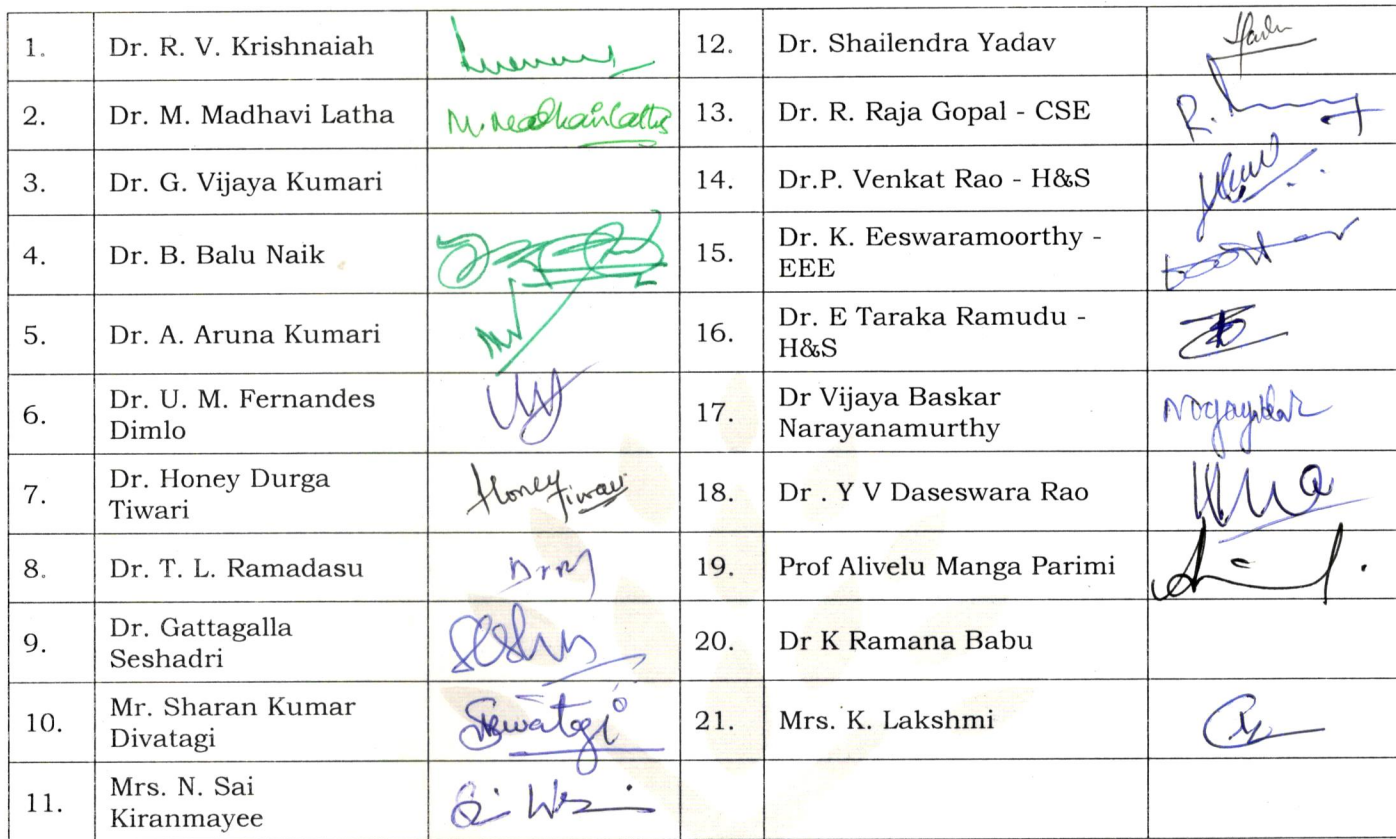 1. Dr. R. V. Krishnaiah 12. Dr. Shailendra Yadav
2. Dr. M. Madhavi Latha M. Madhavi Latha 13. Dr. R. Raja Gopal - CSE
3. Dr. G. Vijaya Kumari 14. Dr.P. Venkat Rao - H&S
4. Dr. B. Balu Naik 15. Dr. K. Eeswaramoorthy -
EEE
5. Dr. A. Aruna Kumari 16. Dr. E Taraka Ramudu -
H&S
6. Dr. U. M. Fernandes
Dimlo
17. Dr Vijaya Baskar
Narayanamurthy
7. Dr. Honey Durga
Tiwari
Honey
Tiwari
18. Dr . Y V Daseswara Rao
8. Dr. T. L. Ramadasu 19. Prof Alivelu Manga Parimi
9. Dr. Gattagalla
Seshadri
20. Dr K Ramana Babu
10. Mr. Sharan Kumar
Divatagi
21. Mrs. K. Lakshmi
11. Mrs. N. Sai
Kiranmayee